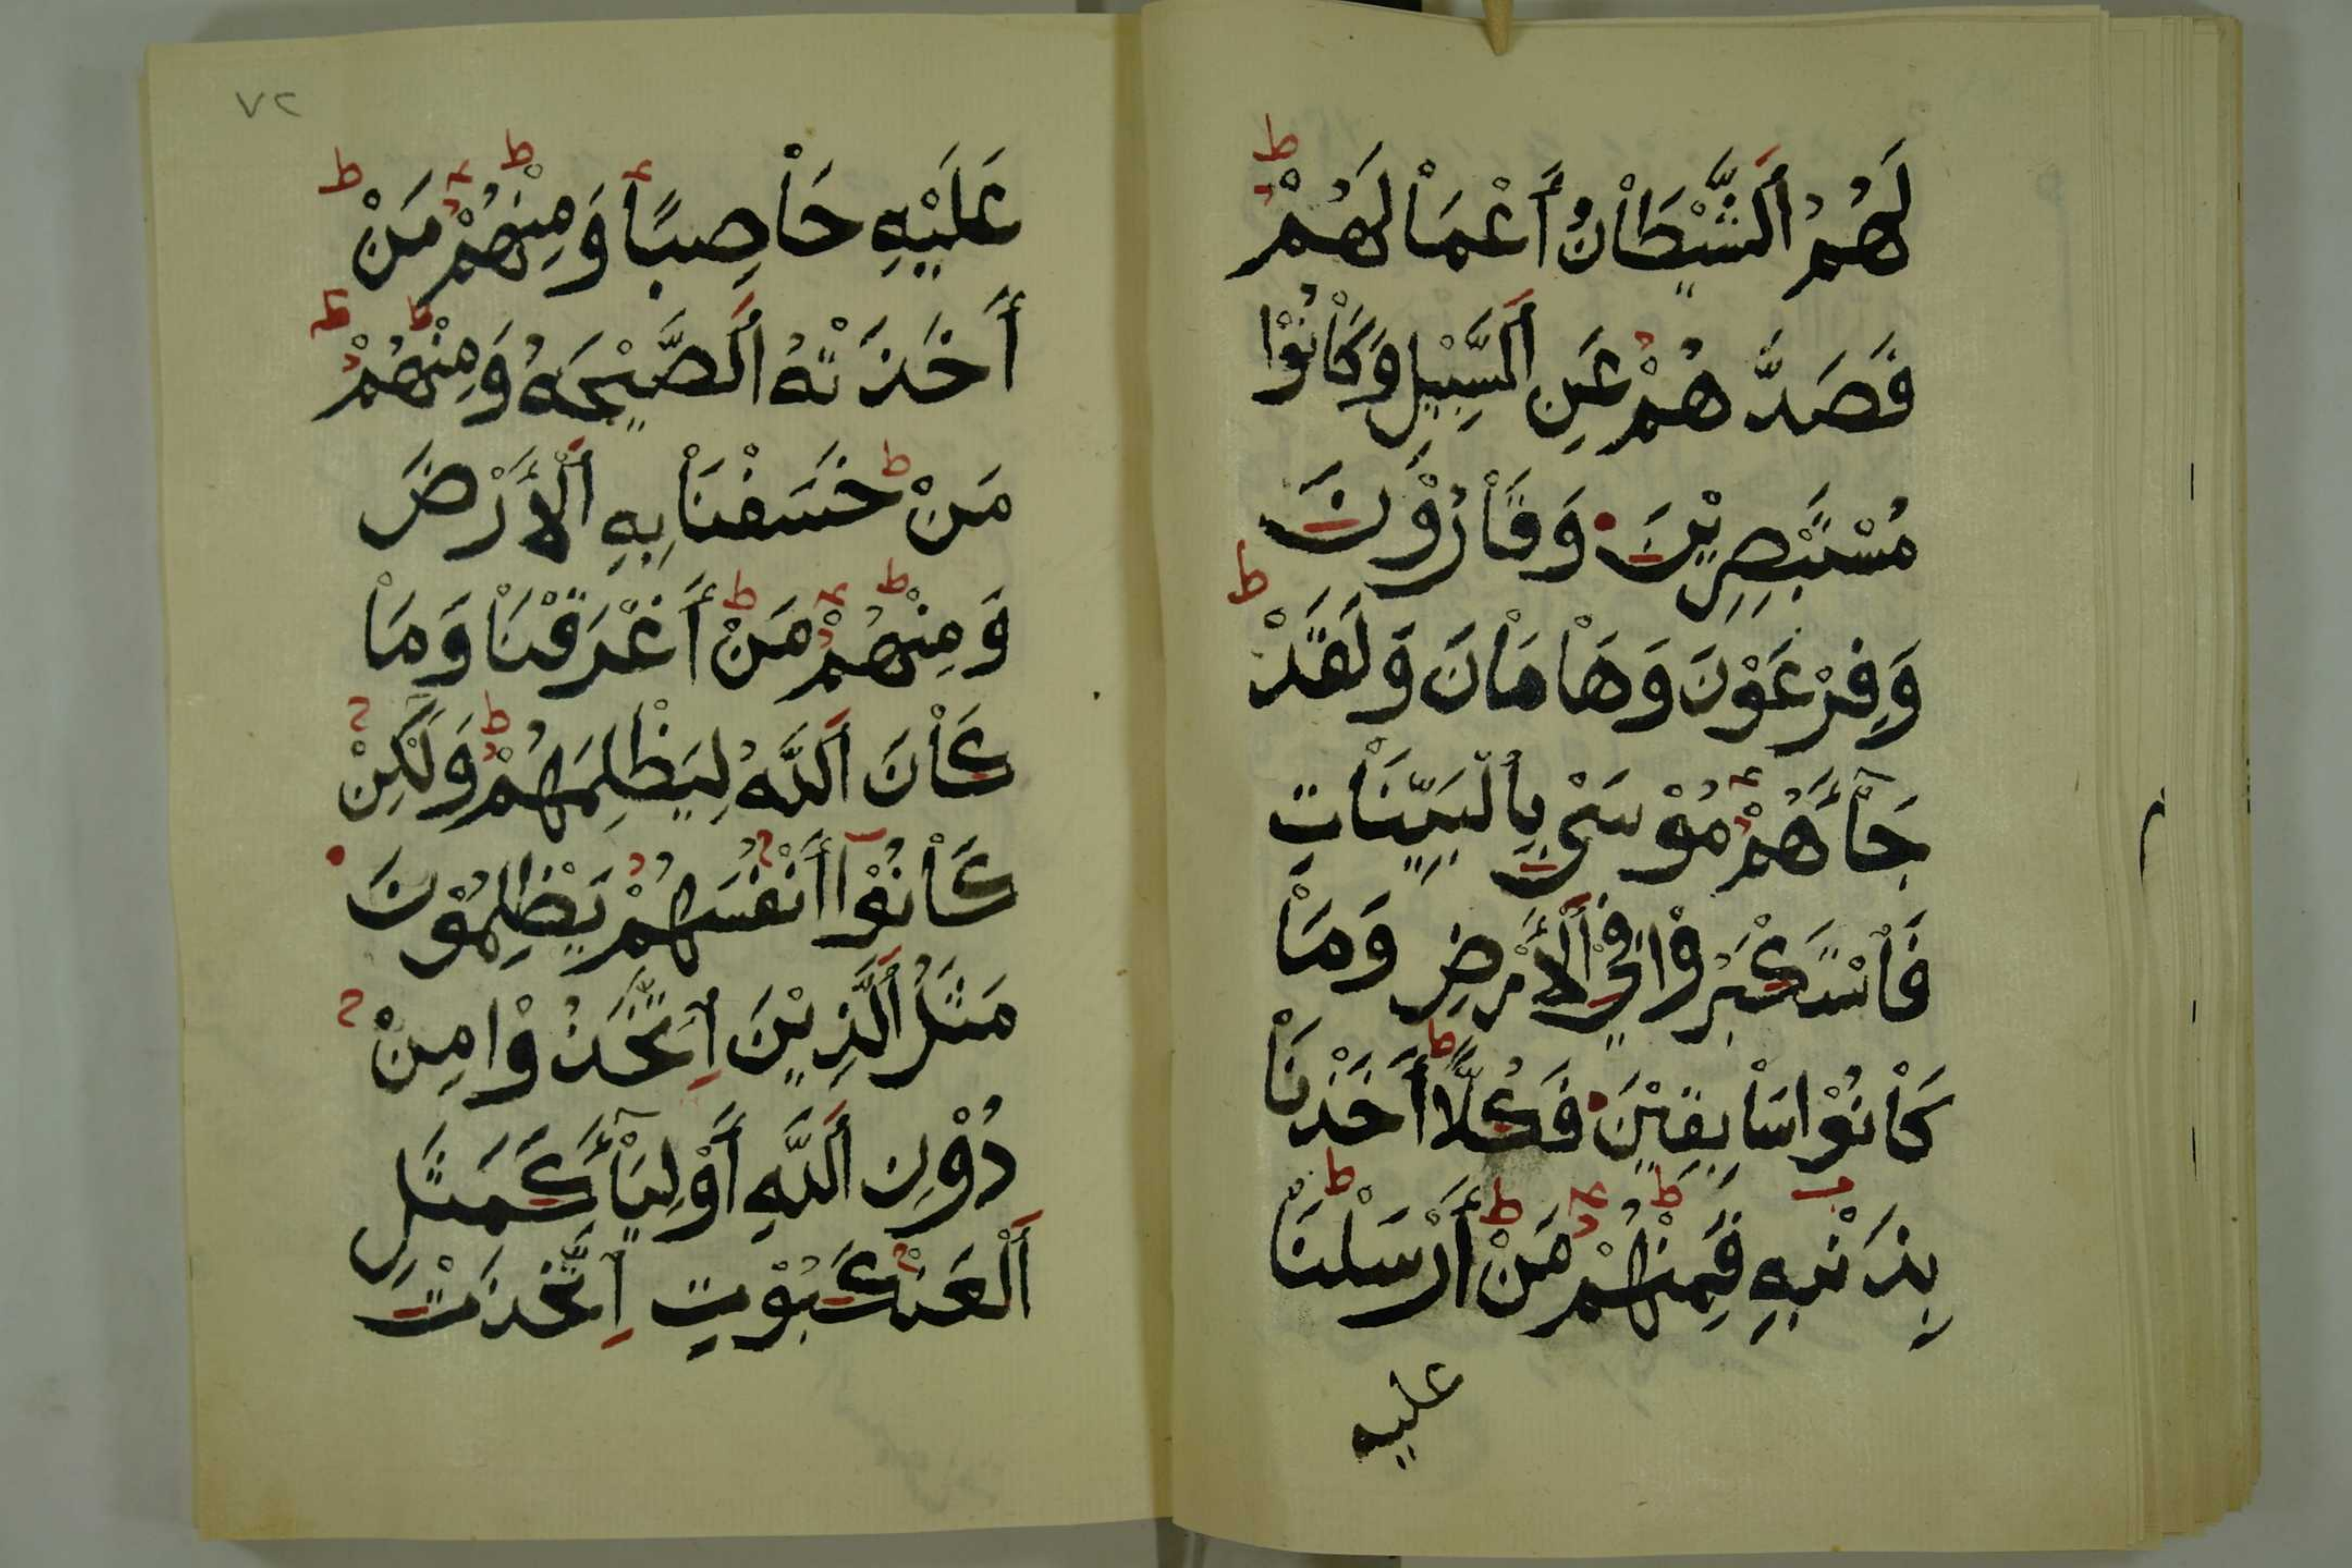 لَهُمُ اَلشَّيْطَاْنُ أَعْمَاْلَهُمْ
فَصَدَّهُمْ عَنِ اَلسَّبِيْلِ وَكَاْنُوْا
مُسْتَبْصِرِيْنَ وَقَاْرُوْنَ
وَفِرْعَوْنَ وَهَاْمَاْنَ وَلَقَدْ
جَآْءَهُمْ مُوْسَىْ بِاْلْبَيِّنَاْتِ
فَاْسْتَكْبَرُوْا فِيْ اَلْأَرْضِ وَمَاْ
كَاْنُوْا سَاْبِقِيْنَ فَكُلًّا أَخَذْنَاْ
بِذَنْبِهِ فَمِنْهُمْ مَنْ أَرْسَلْنَاْ
عليه
٧٢
عَلَيْهِ حَاْصِبًا وَمِنْهُمْ مَنْ
أَخَذَتْهُ اَلصَّيْحَهُ وَمِنْهُمْ
مَنْ خَسَفْنَاْ بِهِ اَلْأَرْضَ
وَمِنْهُمْ مَنْ أَغْرَقْنَاْ وَمَاْ
كَاْنَ اَللَّهُ لِيَظْلِمَهُمْ وَلَكِنْ
كَاْنُوْآ أَنْفُسَهُمْ يَظْلِمُوْنَ
مَثَلُ اَلَّذِيْنَ اِتَّخَذُوْا مِنْ
دُوْنِ اَللَّهِ أَوْلِيَآْءَ كَمَثَلِ
اَلْعَنْكَبُوْتِ اِتَّخَذَتْ